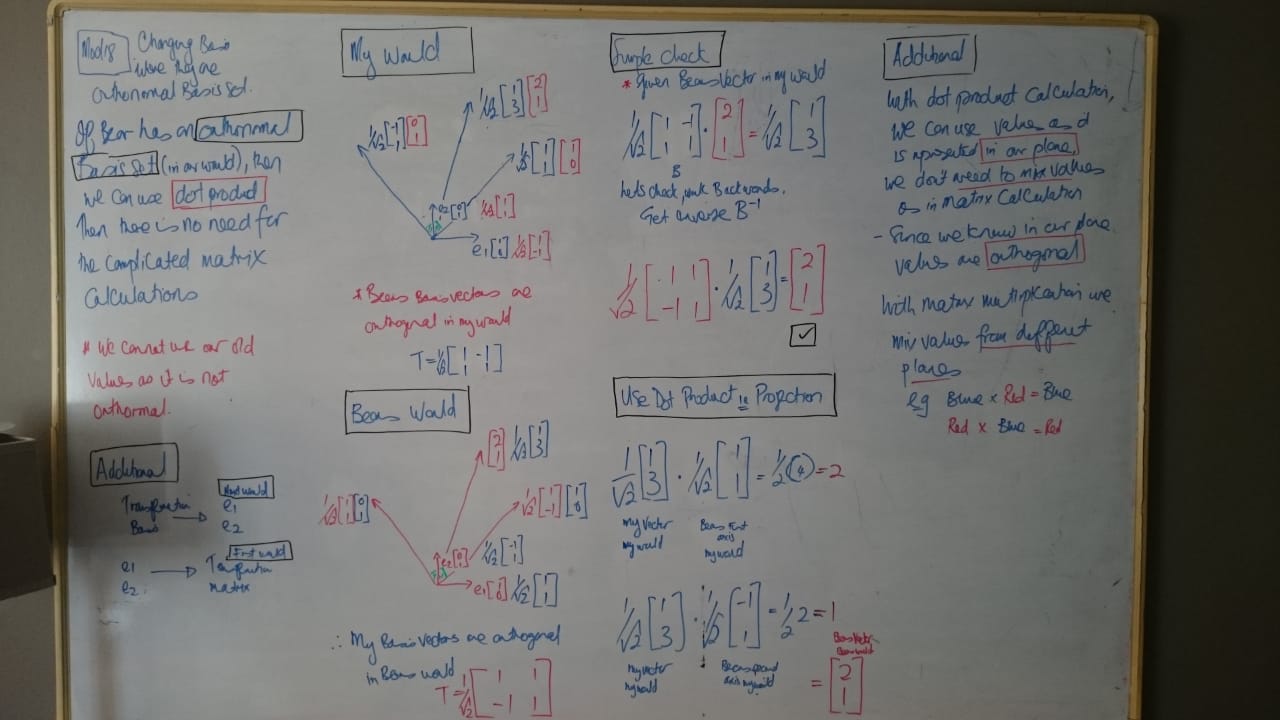 Mod18
Changing Basis
were they are
orthonomal Basis Set.
If Bear has an orthonormal
Basis Set (in our world), then
we can use dot product
Then there is no need for
the complicated matrix
Calculations
* We cannot use our old
values as it is not
orthormal.
Additional
Transformation
Basis
→
Next world
e1
e2
e1
e2
→
First world
Transformation
matrix
My World
1/√2 [-1 1] [0 1]
1/√2 [1 3] [2 1]
1/√2 [1 1] [1 0]
e2 [0 1] 1/√2 [1 1]
e1 [1 0] 1/√2 [1 -1]
* Bears Basis vectors are
orthogonal in my world
T = 1/√2 [1 -1
1 1]
Bears World
[2 1] 1/√2 [1 3]
1/√2 [1 1] [0 1]
1/√2 [1 -1] [1 0]
e2 [0 1] 1/√2 [-1 1]
e1 [1 0] 1/√2 [1 1]
∴ My Basis vectors are orthogonal
in Bears world
T = 1/√2 [1 1
-1 1]
Simple check
* Given Bears Vector in my world
1/√2 [1 -1
1 1] · [2 1] = 1/√2 [1 3]
B
lets check, work Backwards.
Get inverse B⁻¹
1/√2 [1 1
-1 1] · 1/√2 [1 3] = [2 1]
✓
Use Dot Product is Projection
1/√2 [1 3] · 1/√2 [1 1] = 1/2 (4) = 2
my vector
my world
Bears First
axis
my world
1/√2 [1 3] · 1/√2 [-1 1] = 1/2 2 = 1
my vector
my world
Bears second
axis my world
Bears Vector
Bears world
= [2 1]
Additional
With dot product Calculation,
we can use values as it
is represented in our plane
we don't need to mix values
as in matrix Calculation
- Since we know in our plane
values are orthogonal
With matrix multiplication we
mix values from different
planes
eg Blue x Red = Blue
Red x Blue = Red